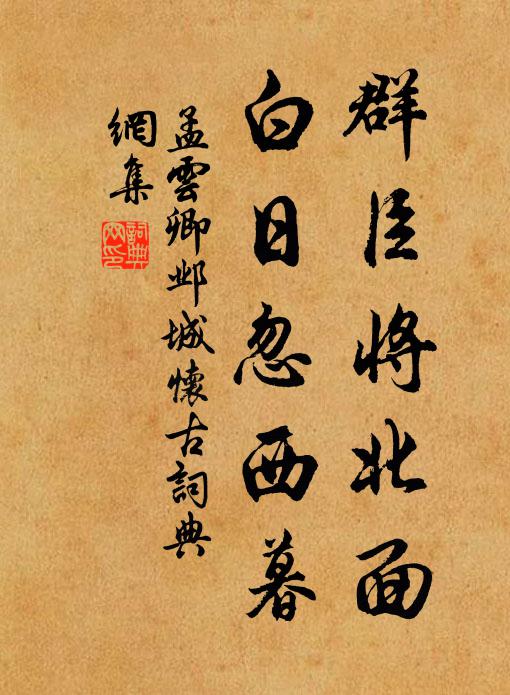 群臣将北面
白日忽西暮
孟雲卿邺城懷古詞典
網集
詞典
网印